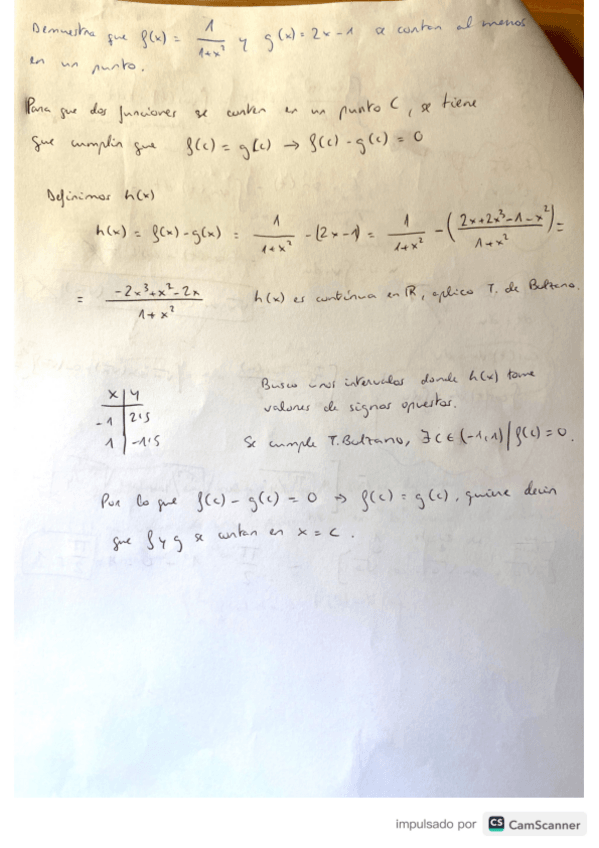 Demuestra que f(x) = 1/(1+x²) y g(x) = 2x-1 se cortan al menos
en un punto.
Para que dos funciones se corten en un punto C, se tiene
que cumplir que f(c) = g(c) → f(c) - g(c) = 0
Definimos h(x)
h(x) = f(x) - g(x) = 1/(1+x²) - (2x-1) = 1/(1+x²) - ((2x+2x³-1-x²)/(1+x²)) =
= (-2x³+x²-2x)/(1+x²) h(x) es contínua en ℝ, aplico T. de Bolzano.
x | y
-1 | 2'5
1 | -1'5
Busco unos intervalos donde h(x) tome
valores de signos opuestos.
Se cumple T. Bolzano, ∃ c ∈ (-1,1) / f(c) = 0.
Por lo que f(c) - g(c) = 0 ⇒ f(c) = g(c), quiere decir
que f y g se cortan en x = c.
impulsado por CS CamScanner